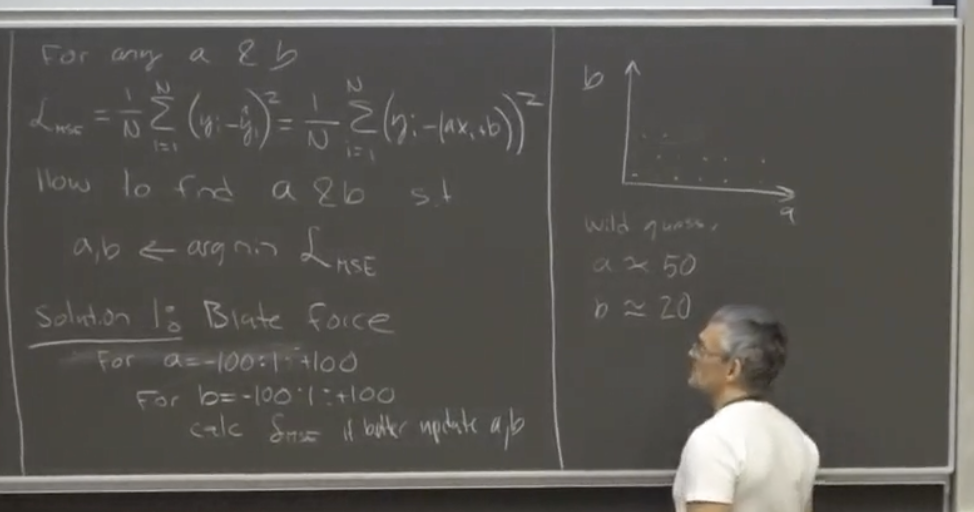 For any a & b
L_MSE = 1/N Σ_{i=1}^{N} (y_i - ŷ_i)² = 1/N Σ_{i=1}^{N} (y_i - (ax_i + b))²
How to find a & b s.t
a,b ← argmin L_MSE
Solution 1: Brute force
For a=-100:1:+100
For b=-100:1:+100
calc L_MSE if better update a,b
b
a
wild guess,
a ≈ 50
b ≈ 20